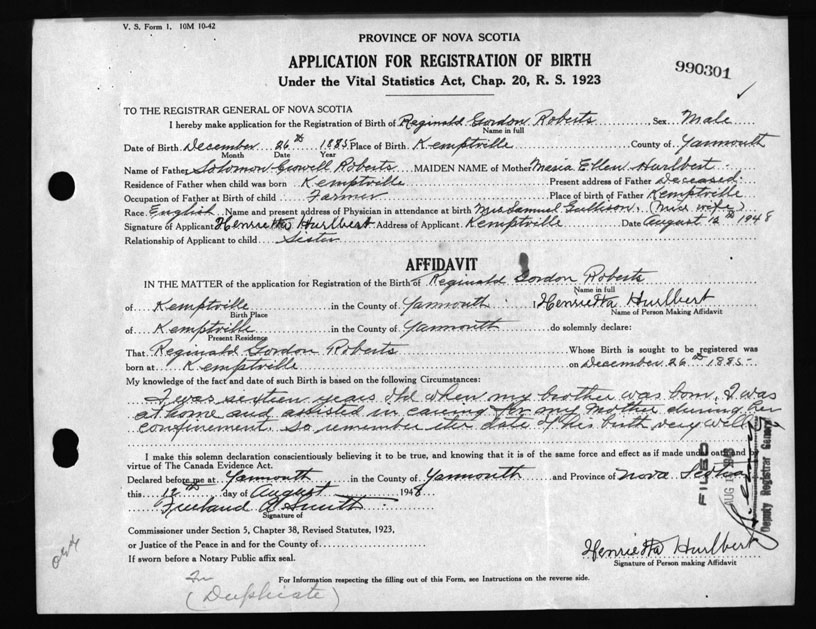 V. S. Form 1. 10M 10-42
PROVINCE OF NOVA SCOTIA
APPLICATION FOR REGISTRATION OF BIRTH
Under the Vital Statistics Act, Chap. 20, R. S. 1923
990301
TO THE REGISTRAR GENERAL OF NOVA SCOTIA
I hereby make application for the Registration of Birth of Reginald Gordon Roberts Sex Male
Name in full
Date of Birth December 26th 1885 Place of Birth Kemptville County of Yarmouth
Month Date Year
Name of Father Solomon Crowell Roberts MAIDEN NAME of Mother Mesia Ellen Hurlbert
Residence of Father when child was born Kemptville Present address of Father Deceased
Occupation of Father at Birth of child Farmer Place of birth of Father Kemptville
Race English Name and present address of Physician in attendance at birth Mrs Samuel Gullison. (Mid wife)
Signature of Applicant Henrietta Hurlbert Address of Applicant Kemptville Date August 12th 1948
Relationship of Applicant to child Sister
AFFIDAVIT
IN THE MATTER of the application for Registration of the Birth of Reginald Gordon Roberts
Name in full
of Kemptville in the County of Yarmouth I, Henrietta Hurlbert
Birth Place Name of Person Making Affidavit
of Kemptville in the County of Yarmouth do solemnly declare:
Present Residence
That Reginald Gordon Roberts Whose Birth is sought to be registered was
born at Kemptville on December 26th 1885
My knowledge of the fact and date of such Birth is based on the following Circumstances:
I was sixteen years old when my brother was born. I was
at home and assisted in caring for my Mother during her
confinement. So remember the date of his birth very well
I make this solemn declaration conscientiously believing it to be true, and knowing that it is of the same force and effect as if made under oath and by
virtue of The Canada Evidence Act.
Declared before me at Yarmouth in the County of Yarmouth and Province of Nova Scotia
this 12th day of August 1948
Signature of
Commissioner under Section 5, Chapter 38, Revised Statutes, 1923,
or Justice of the Peace in and for the County of
If sworn before a Notary Public affix seal.
Henrietta Hurlbert
Signature of Person making Affidavit
For Information respecting the filling out of this Form, see Instructions on the reverse side.
In
(Duplicate)
FILED
AUG
Deputy Registrar General